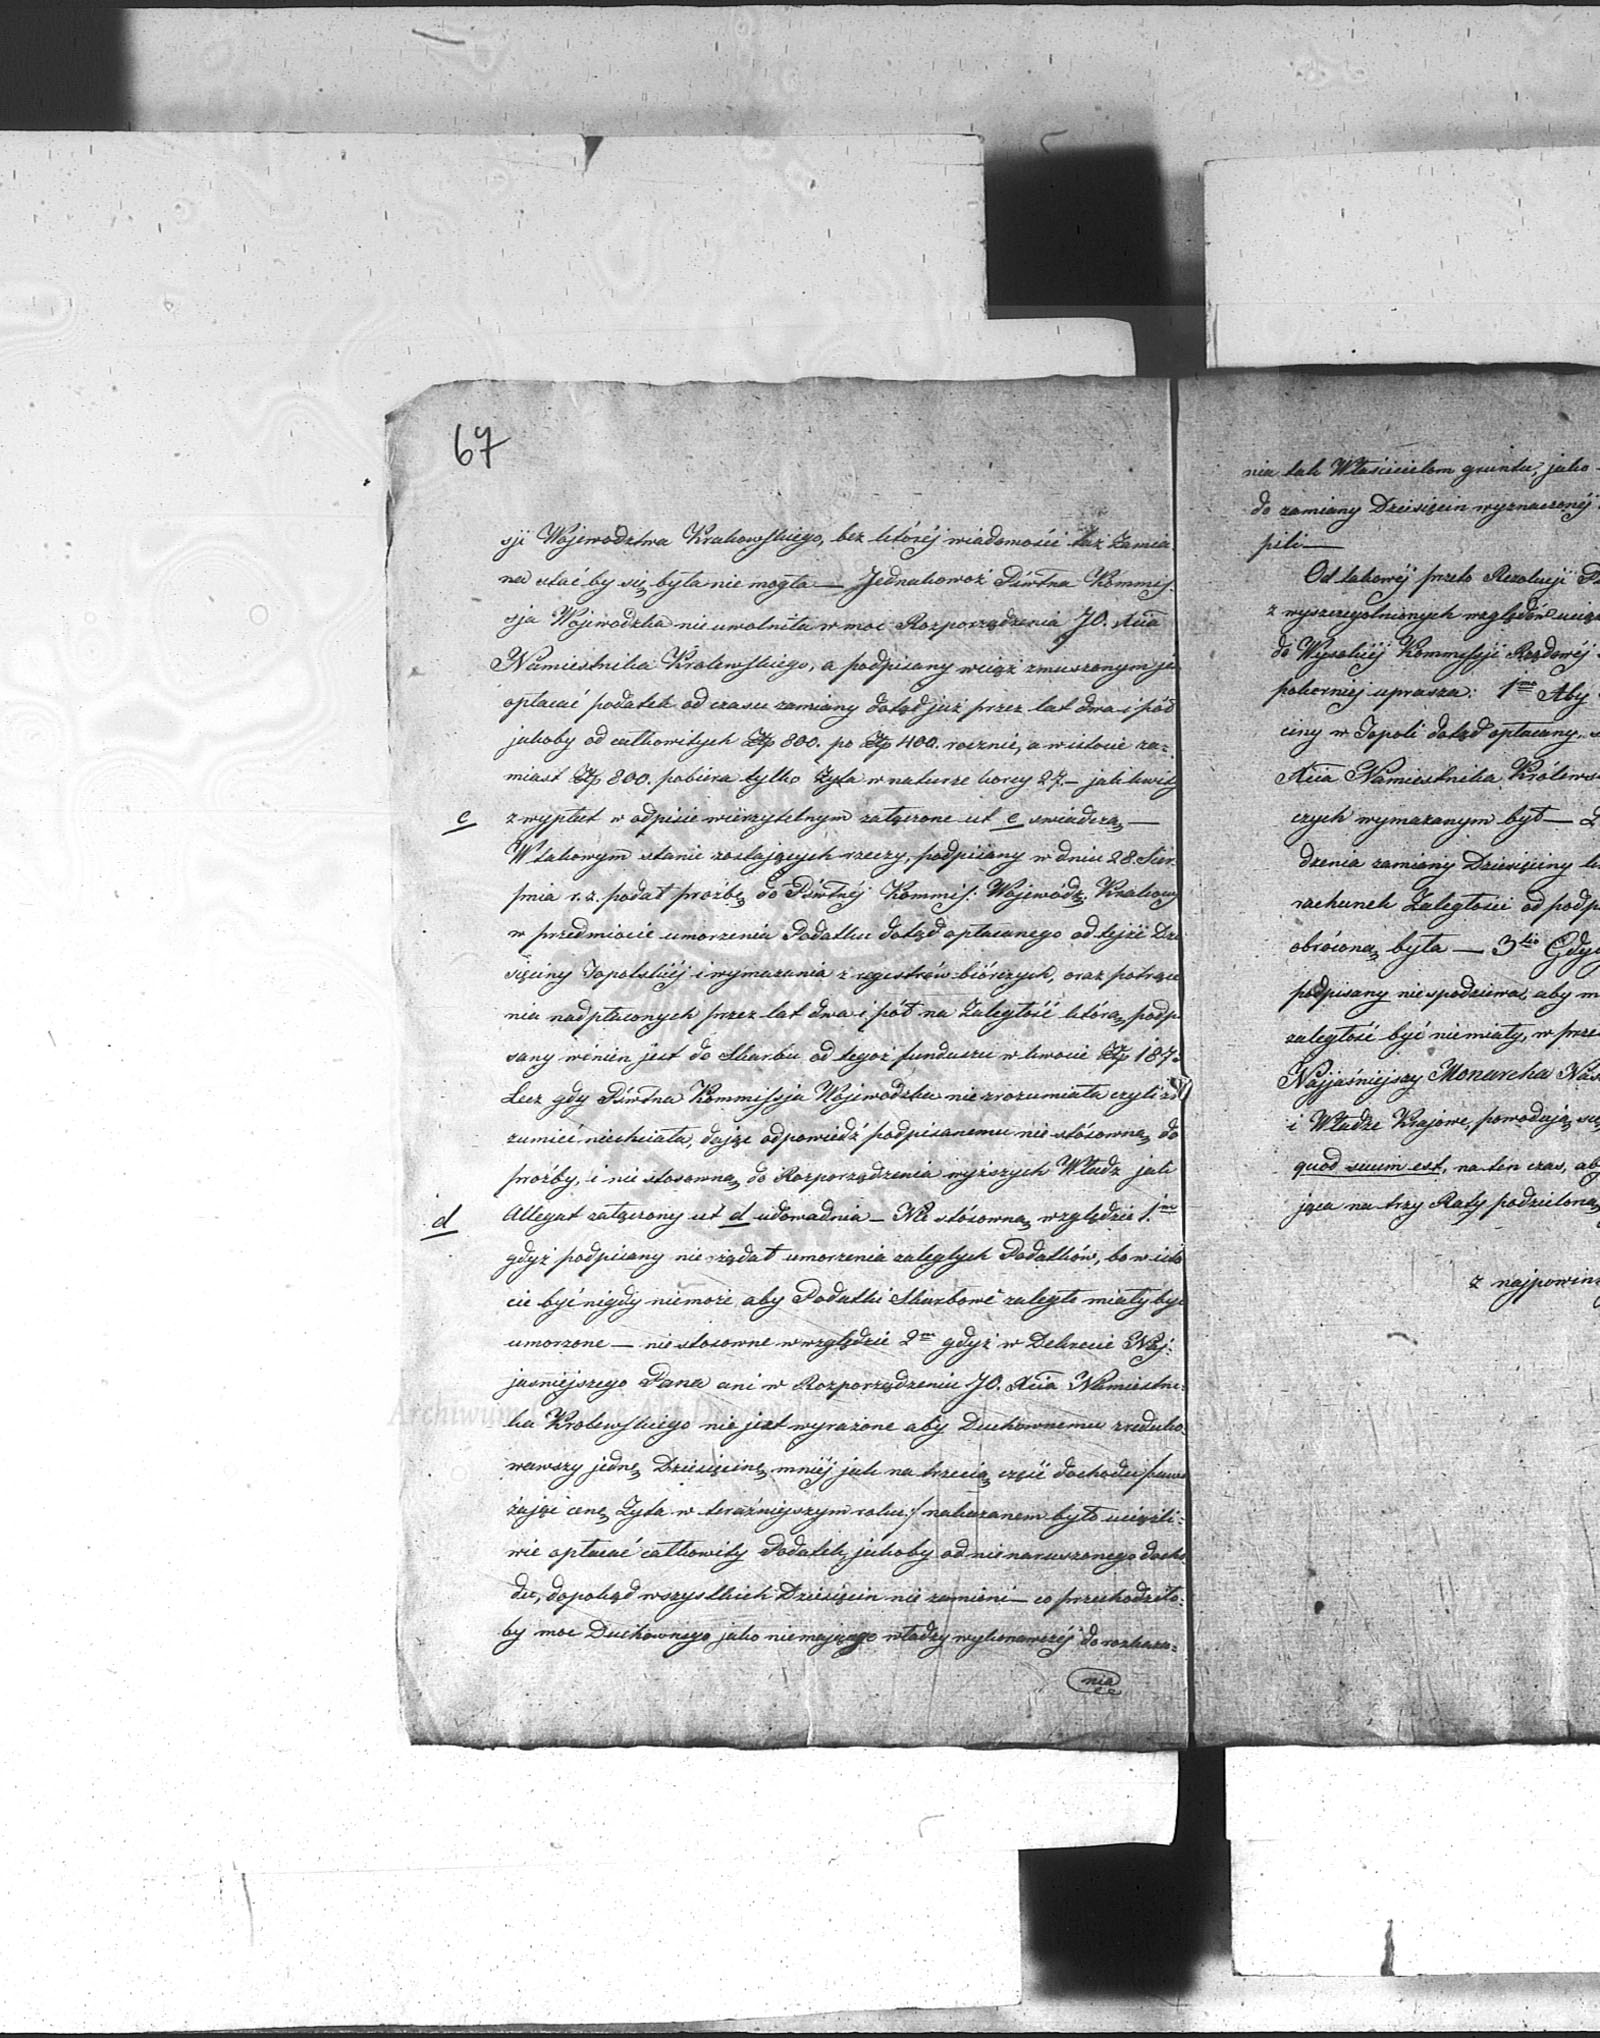 67
sji Województwa Krakowskiego, bez którèj wiadomości taż zamia
na stać by się była nie mogła — Jednakowoż Kommis
sja Wojewodzka nie uwolniła w moc Rozporządzenia JO. Xcia
Namiestnika Krolewskiego, a podpisany wciąż zmuszonym je
opłacać podatek od czasu zamiany dotąd już przez lat dwa i pół
jakoby od całkowitych Złp 800. po Złp 400. rocznie, a w istocie za=
miast Złp 800. pobiera tylko Żyta w naturze korcy 27. — jak kwity
c z wypłat w odpisie wierzytelnym załączone ut c swiadczą —
W takowym stanie zostających rzeczy, podpisany w dniu 28. Sier
pnia r. z. podał proźbę do Kommis: Wojewodz. Krakow
w przedmiocie umorzenia Podatku dotąd opłacanego od tejże Dzie
sięciny Topolskiéj i wymazania z regestrów biórczych, oraz potrące
nia nadpłaconych przez lat dwa i pół na Zaległość którą podpi
sany winien jest do Skarbu od tegoż funduszu w kwocie Złp 187.
Lecz gdy Kommissja Wojewodzka nie zrozumiała czyli zro
zumieć niechciała, dając odpowiedź podpisanemu nie stósowną do
proźby, i nie stosowną do Rozporządzenia wyższych Władz jak
d Allegat załączony ut d udowadnia — Nie stósowną względzie 1.mo
gdyż podpisany nie rządał umorzenia zaległych Podatków, bo w isto
cie być nigdy niemoże aby Podatki Skarbowe zaległe miały być
umorzone — nie stosowne w względzie 2do gdyż w Dekrecie Naj:
jasniejszego Pana ani w Rozporządzeniu JO. Xcia Namiestni
ka Krolewskiego nie jest wyrażone aby Duchownemu zreduko
wawszy jednę Dziesięcinę mniéj jak na trzecią część dochodu /: uwa
żając cenę Żyta w teraźniejszym roku :/ nakazanem było uciążli=
wie opłacać całkowity Podatek jakoby od nienaruszonego docho
du, dopokąd wszystkich Dziesięcin nie zamieni — co przechodziło=
by moc Duchownego jako nie mającego władzy wykonawczéj do rozkaza=
nia
nia tak Właścicielom gruntu, jako
do zamiany Dziesięcin wyznaczonéj
pili —
Od takowéj przeto Rezolucji
z wyszczegolnionych względów
do Wysokiéj Kommissji Rządowéj
pokorniej uprasza: 1mo Aby
ciny w Topoli dotąd opłacany
Xcia Namiestnika Królews
czych wymazanym był —
dzenia zamiany Dziesięciny
rachunek Zaległości od podp
obróconą była — 3tio Gdy
podpisany niespodziewa, aby
zaległość być niemiały, w prze
Najjaśniejszy Monarcha Nas
i Władze Krajowe, powodują
quod suum est, na ten czas, ab
jąca na trzy Raty podzieloną
z najpowin